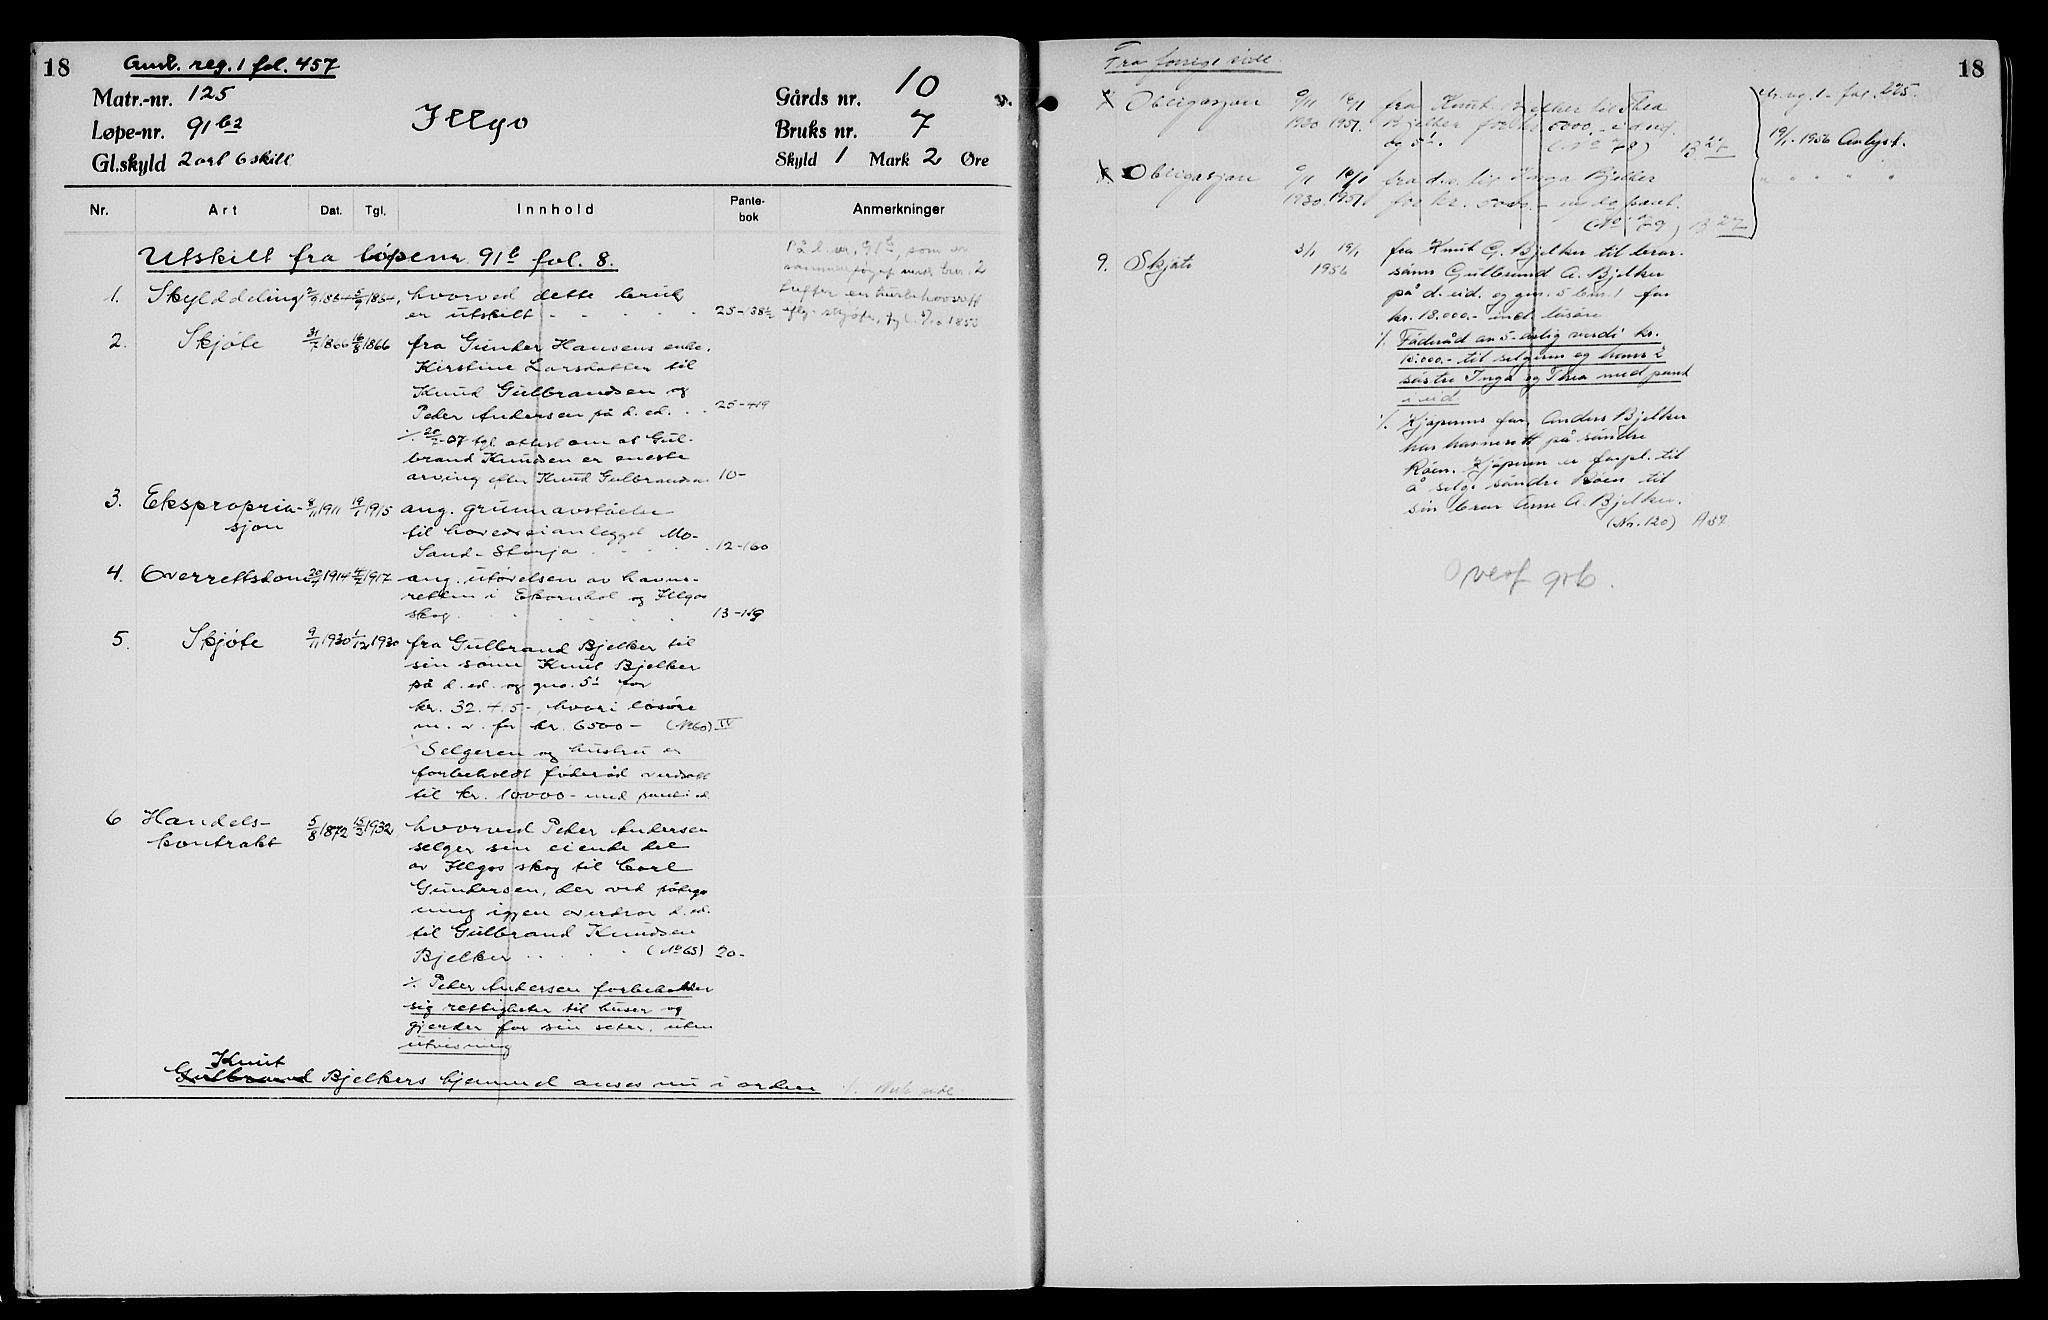 18
Anm. reg. 1 fol. 457
Matr.-nr. 125
Løpe-nr. 91 b2
Gl.skyld 2 ort 6 skill
Illgo
Gårds nr. 10
Bruks nr. 7
Skyld 1 Mark 2 Øre
Nr. Art Dat. Tgl. Innhold Pante-bok Anmerkninger
Utskilt fra løpenr. 91b fol. 8.
På l. nr. 91b, som er
2
hefter en
1. Skylddeling hvorved dette bruk
er utskilt - - - - 25-38½
2. Skjøte 31/7 1866 16/8 1866 fra Gunder Hansens enke,
Kirstine Larsdatter til
Knud Gulbrandsen og
Peder Andersen på d. ed. . . 25-419
./. tgl. attest om at Gul-
brand Knudsen er eneste
arving efter Knud Gulbrandsen 10-
3. Ekspropria-
sjon 8/11 1911 19/1 1915 ang. grunnavståelse
til hovedveianlegget Mo-
Sand-Storsjø . . . . 12-160
4. Overrettsdom 1914 1917 ang. utøvelsen av havne-
retten i Ekornhol og Illgos
skog. . . . . . 13-119
5. Skjøte 9/11 1930 1/12 1930 fra Gulbrand Bjelker til
sin sønn Knut Bjelker
på d. ed. og gnr. 5¹ for
kr. 32.415-, hvori løsøre
m. v. for kr. 6500- (No 60) IV
Selgeren og hustru er
forbeholdt føderåd verdsatt
til kr. 10000- med pant i ed.
6 Handels-
kontrakt 5/8 1872 15/3 1932 hvorved Peder Andersen
selger sin eiende del
av Illgos skog til Carl
Gundersen, der ved påteg-
ning igjen overdrar d. ed.
til Gulbrand Knudsen
Bjelker . . . . . (No 65) 20-
./. Peder Andersen forbeholder
sig rettigheter til huser og
gjerder for sin seter, uten
utvisning
Knut
Gulbrand Bjelkers hjemmel anses nu i orden ./. Neste side
18
Fra forrige side.
7. Obligasjon 9/11 1930 fra Knut Bjelker til Thea
Bjelker for kr. 5000.- i d. ed.
og 5¹. (No 78) B 27
fol. 225.
19/1-1956 Avlyst.
8. Obligasjon 9/11 1930 fra d.s. til Inga Bjelker
for kr. 5000.- pant.
(No 79) B 27
" " " " "
9. Skjøte 3/1 19/1
1956 fra Knut G. Bjelker til bror-
sønn Gulbrand A. Bjelker
på d. eid. og gnr. 5 bnr. 1 for
kr. 18.000.- inkl. løsøre.
./. Føderåd av 5-årlig verdi kr.
10.000.- til selgeren og hans 2
søstre Inga og Thea med pant
i eid.
./. Kjøperens far, Anders Bjelker
har havnerett på søndre
Røen. Kjøperen er forpl. til
å selge søndre Røen til
sin bror Arne A. Bjelker.
(Nr. 120) A 59
Overf grb.